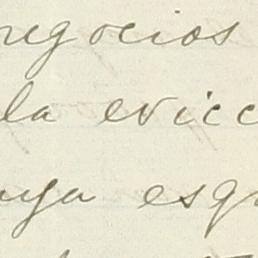 negocios
la evicc
nya esqu